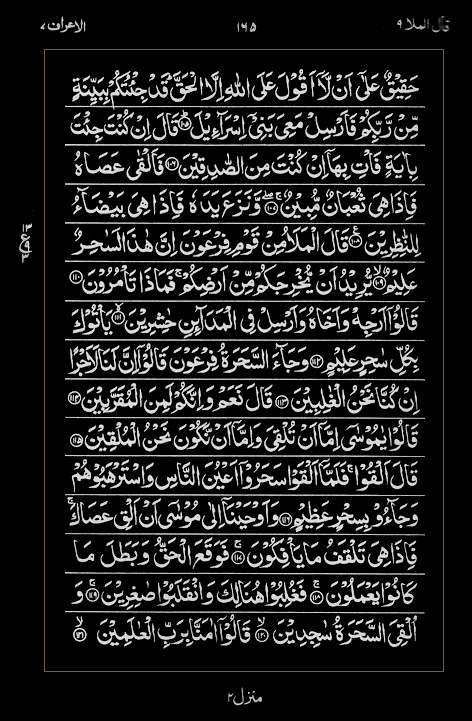 قال الملا ٩ ١٦٥ الاعراف ٧
حَقِيْقٌ عَلٰٓى اَنْ لَّاۤ اَقُوْلَ عَلَى اللّٰهِ اِلَّا الْحَقَّ ؕ قَدْ جِئْتُكُمْ بِبَيِّنَةٍ
مِّنْ رَّبِّكُمْ فَاَرْسِلْ مَعِىَ بَنِىْۤ اِسْرَآءِيْلَ ؕ ﴿۱۰۵﴾ قَالَ اِنْ كُنْتَ جِئْتَ
بِاٰيَةٍ فَاْتِ بِهَاۤ اِنْ كُنْتَ مِنَ الصّٰدِقِيْنَ ﴿۱۰۶﴾ فَاَلْقٰى عَصَاهُ
فَاِذَا هِىَ ثُعْبَانٌ مُّبِيْنٌ ۚۖ ﴿۱۰۷﴾ وَّنَزَعَ يَدَهٗ فَاِذَا هِىَ بَيْضَآءُ
لِلنّٰظِرِيْنَ ﴿۱۰۸﴾ قَالَ الْمَلَاُ مِنْ قَوْمِ فِرْعَوْنَ اِنَّ هٰذَا لَسٰحِرٌ
عَلِيْمٌ ۙ ﴿۱۰۹﴾ يُّرِيْدُ اَنْ يُّخْرِجَكُمْ مِّنْ اَرْضِكُمْ ۚ فَمَاذَا تَاْمُرُوْنَ ﴿۱۱۰﴾
قَالُوْۤا اَرْجِهْ وَاَخَاهُ وَاَرْسِلْ فِى الْمَدَآئِنِ حٰشِرِيْنَ ۙ ﴿۱۱۱﴾ يَاْتُوْكَ
بِكُلِّ سٰحِرٍ عَلِيْمٍ ﴿۱۱۲﴾ وَجَآءَ السَّحَرَةُ فِرْعَوْنَ قَالُوْۤا اِنَّ لَنَا لَاَجْرًا
اِنْ كُنَّا نَحْنُ الْغٰلِبِيْنَ ﴿۱۱۳﴾ قَالَ نَعَمْ وَاِنَّكُمْ لَمِنَ الْمُقَرَّبِيْنَ ﴿۱۱۴﴾
قَالُوْا يٰمُوْسٰٓى اِمَّاۤ اَنْ تُلْقِىَ وَاِمَّاۤ اَنْ نَّكُوْنَ نَحْنُ الْمُلْقِيْنَ ﴿۱۱۵﴾
قَالَ اَلْقُوْا ۚ فَلَمَّاۤ اَلْقَوْا سَحَرُوْۤا اَعْيُنَ النَّاسِ وَاسْتَرْهَبُوْهُمْ
وَجَآءُوْ بِسِحْرٍ عَظِيْمٍ ﴿۱۱۶﴾ وَاَوْحَيْنَاۤ اِلٰى مُوْسٰٓى اَنْ اَلْقِ عَصَاكَ ۚ
فَاِذَا هِىَ تَلْقَفُ مَا يَاْفِكُوْنَ ۚ ﴿۱۱۷﴾ فَوَقَعَ الْحَقُّ وَبَطَلَ مَا
كَانُوْا يَعْمَلُوْنَ ۚ ﴿۱۱۸﴾ فَغُلِبُوْا هُنَالِكَ وَانْقَلَبُوْا صٰغِرِيْنَ ۚ ﴿۱۱۹﴾ وَ
اُلْقِىَ السَّحَرَةُ سٰجِدِيْنَ ۙ ﴿۱۲۰﴾ قَالُوْۤا اٰمَنَّا بِرَبِّ الْعٰلَمِيْنَ ۙ ﴿۱۲۱﴾
منزل ٢